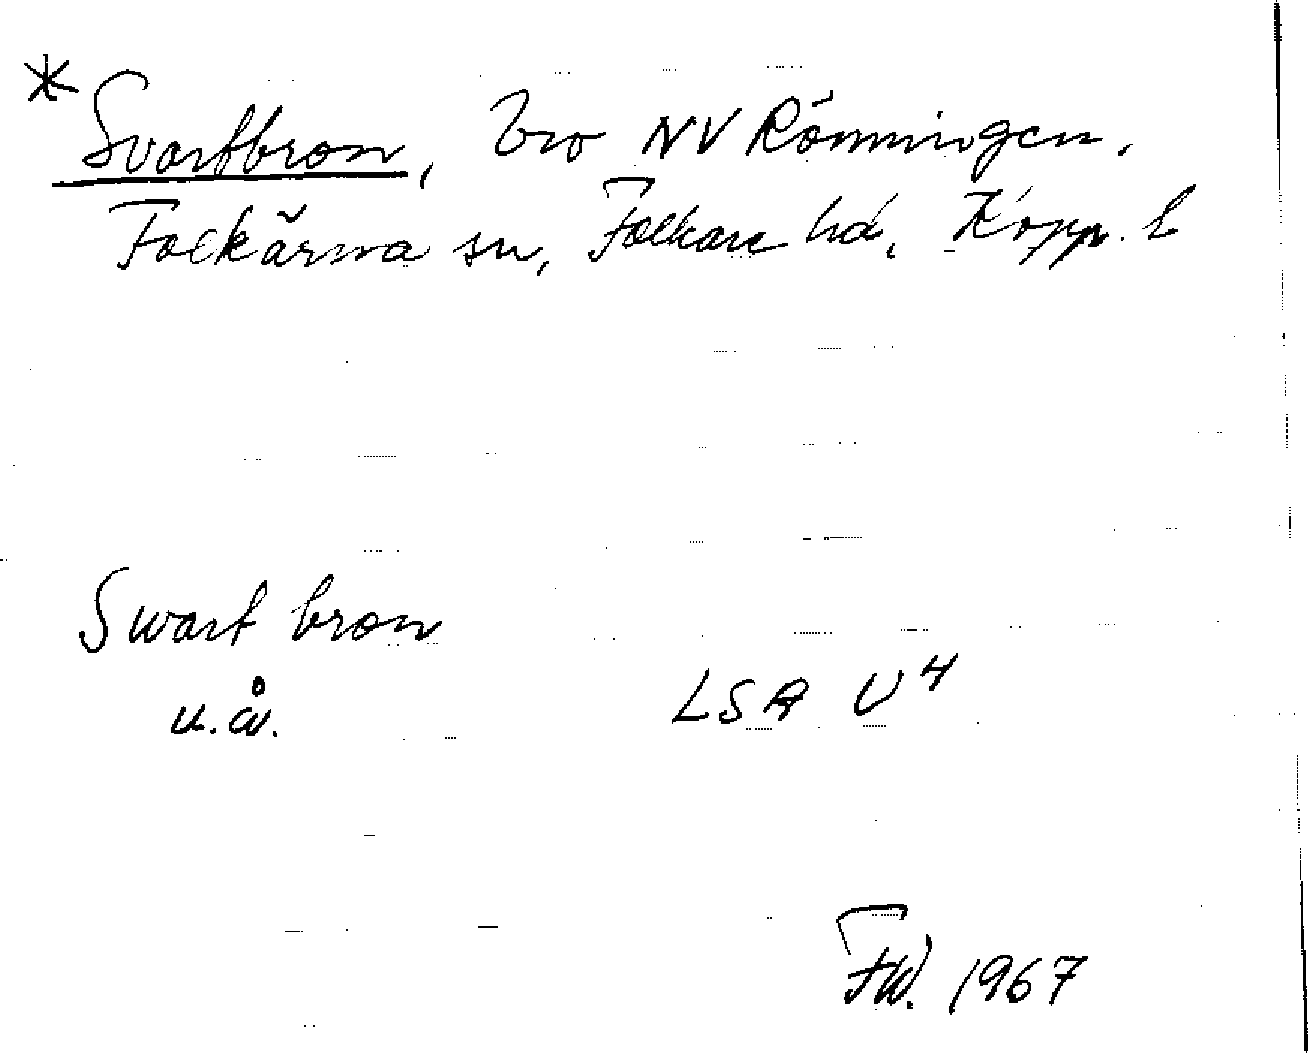 * Svartbron, bro NV Rönningen.
Folkärna sn, Folkare hd, Kopp. l
Swart bron
u.å. LSA U4
FW. 1967